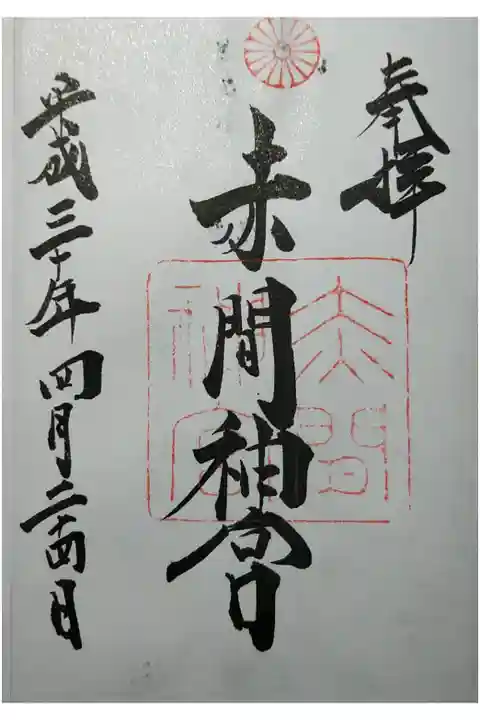 奉拝
赤間神宮
平成三十年四月二十四日
赤間
神宮